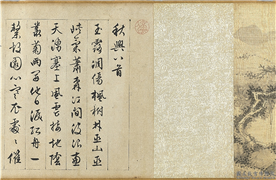 秋興八首
玉露凋傷楓樹林巫山巫
峽氣蕭森江間波浪兼
天湧塞上風雲接地陰
叢菊兩開他日淚孤舟一
繫故園心寒衣處〻催